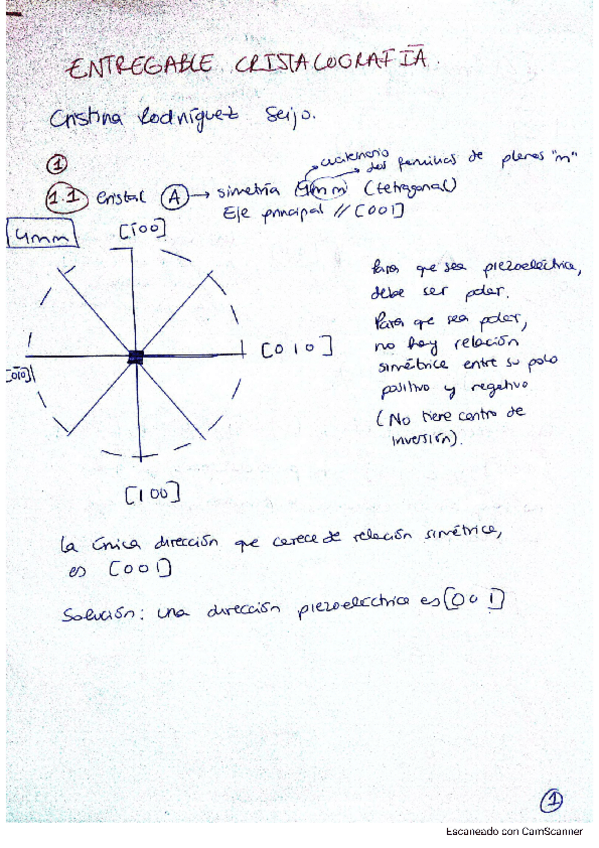 ENTREGABLE CRISTALOGRAFÍA.
Cristina Rodríguez Seijo.
①
1.1 Cristal A → simetría 4mm (tetragonal)
cuaternario
dos familias de planos "m"
Eje principal // [001]
4mm
[1̄00]
[010]
[01̄0]
[100]
Para que sea piezoeléctrica,
debe ser polar.
Para que sea polar,
no hay relación
simétrica entre su polo
positivo y negativo
(No tiene centro de
inversión).
La única dirección que carece de relación simétrica,
es [001]
Solución: una dirección piezoeléctrica es [001]
①
Escaneado con CamScanner